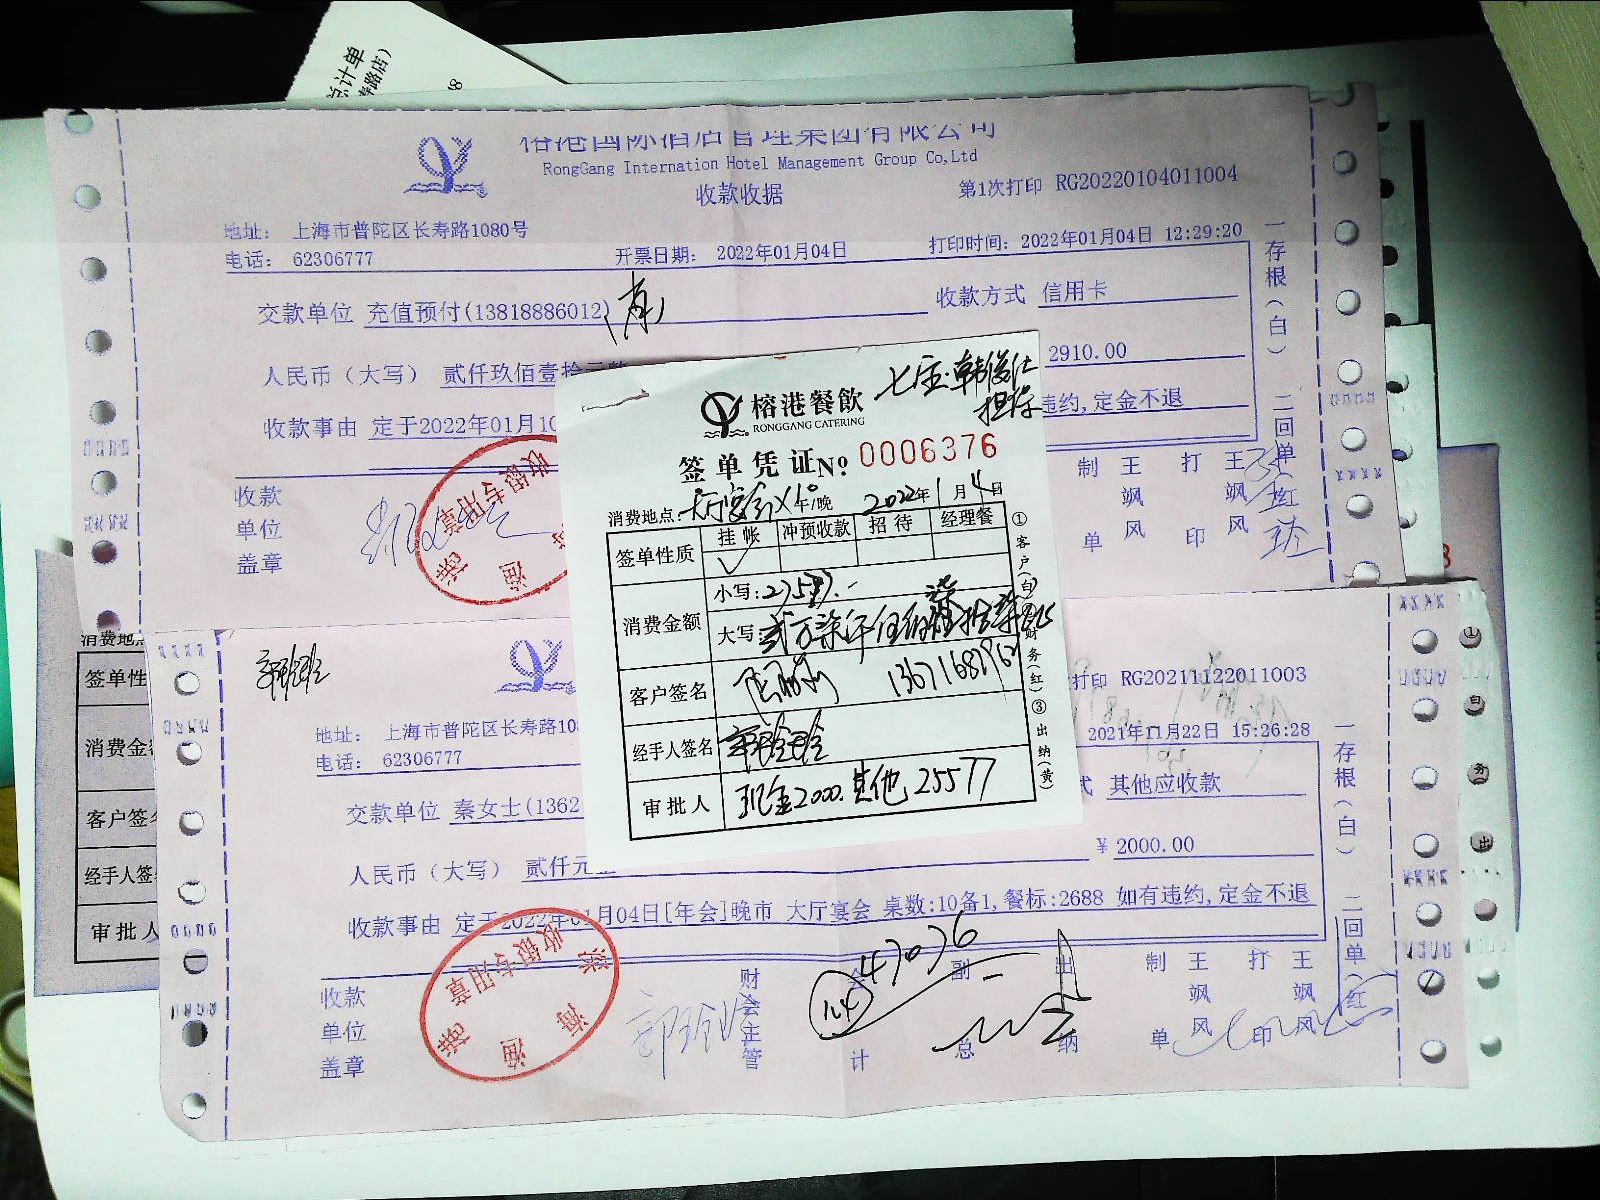 总计单
寿路店)
榕港国际酒店管理集团有限公司
RongGang Internation Hotel Management Group Co,Ltd
收款收据
第1次打印 RG20220104011004
地址： 上海市普陀区长寿路1080号
电话： 62306777
开票日期： 2022年01月04日
打印时间：2022年01月04日 12:29:20
交款单位 充值预付(13818886012)
收款方式 信用卡
人民币（大写） 贰仟玖佰壹拾元
2910.00
收款事由 定于2022年01月10
违约,定金不退
收款
单位
盖章
制单 王飒风
打印 王飒风
一存根(白) 二回单(红)
收银专用章
榕港餐飲
RONGGANG CATERING
七宝.韩
担保
签单凭证№ 0006376
消费地点:
午/晚 2022年1月4日
签单性质 挂帐 冲预收款 招待 经理餐
✓
消费金额 小写:27577.-
大写
客户签名 13671687962
经手人签名
审批人 现金2000.其他25577
①客户(白) 财务(红) ③出纳(黄)
消费地
签单性
消费金
客户签
经手人签
审批人
打印 RG20211122011003
地址： 上海市普陀区长寿路108
电话： 62306777
2021年11月22日 15:26:28
交款单位 秦女士(1362
式 其他应收款
人民币（大写） 贰仟元
¥ 2000.00
收款事由 定于2022年01月04日[年会]晚市 大厅宴会 桌数:10备1,餐标:2688 如有违约,定金不退
47076
收款
单位
盖章
财会主管
会计
副总
出纳
制单 王飒风
打印 王飒风
一存根(白) 二回单(红)
收银专用章